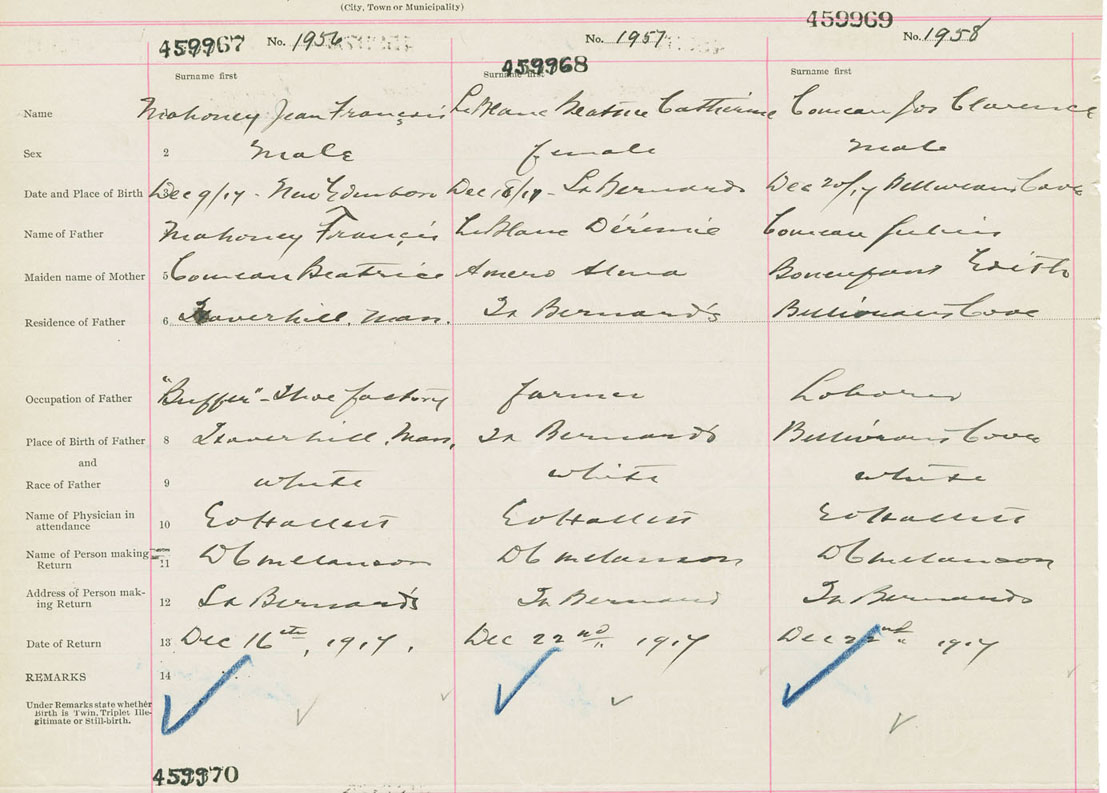 (City, Town or Municipality)
459967 No. 1956 No. 1957 459969 No. 1958
Surname first 459968 Surname first Surname first
Name Mahoney Jean Francis LeBlanc Beatrice Catherine Comeau Jos Clarence
Sex 2 Male female Male
Date and Place of Birth 3 Dec 9/17 - New Edinboro Dec 18/17 - St Bernards Dec 20/17 Belliveaus Cove
Name of Father Mahoney Francis LeBlanc Comeau Julius
Maiden name of Mother 5 Comeau Beatrice Amero Alma Bonenfant Edith
Residence of Father 6 Haverhill, Mass. St Bernard's Belliveaus Cove
Occupation of Father "Buffer" - Shoe factory farmer Laborer
Place of Birth of Father 8 Haverhill, Mass, St Bernard's Belliveaus Cove
and
Race of Father 9 white white white
Name of Physician in attendance 10 EO Hallett EO Hallett EO Hallett
Name of Person making Return 11 DC Melanson DC Melanson DC Melanson
Address of Person making Return 12 St Bernard's St Bernard St Bernards
Date of Return 13 Dec 16th, 1917. Dec 22nd, 1917 Dec 22nd 1917
REMARKS 14
Under Remarks state whether
Birth is Twin, Triplet Ille-
gitimate or Still-birth.
459970